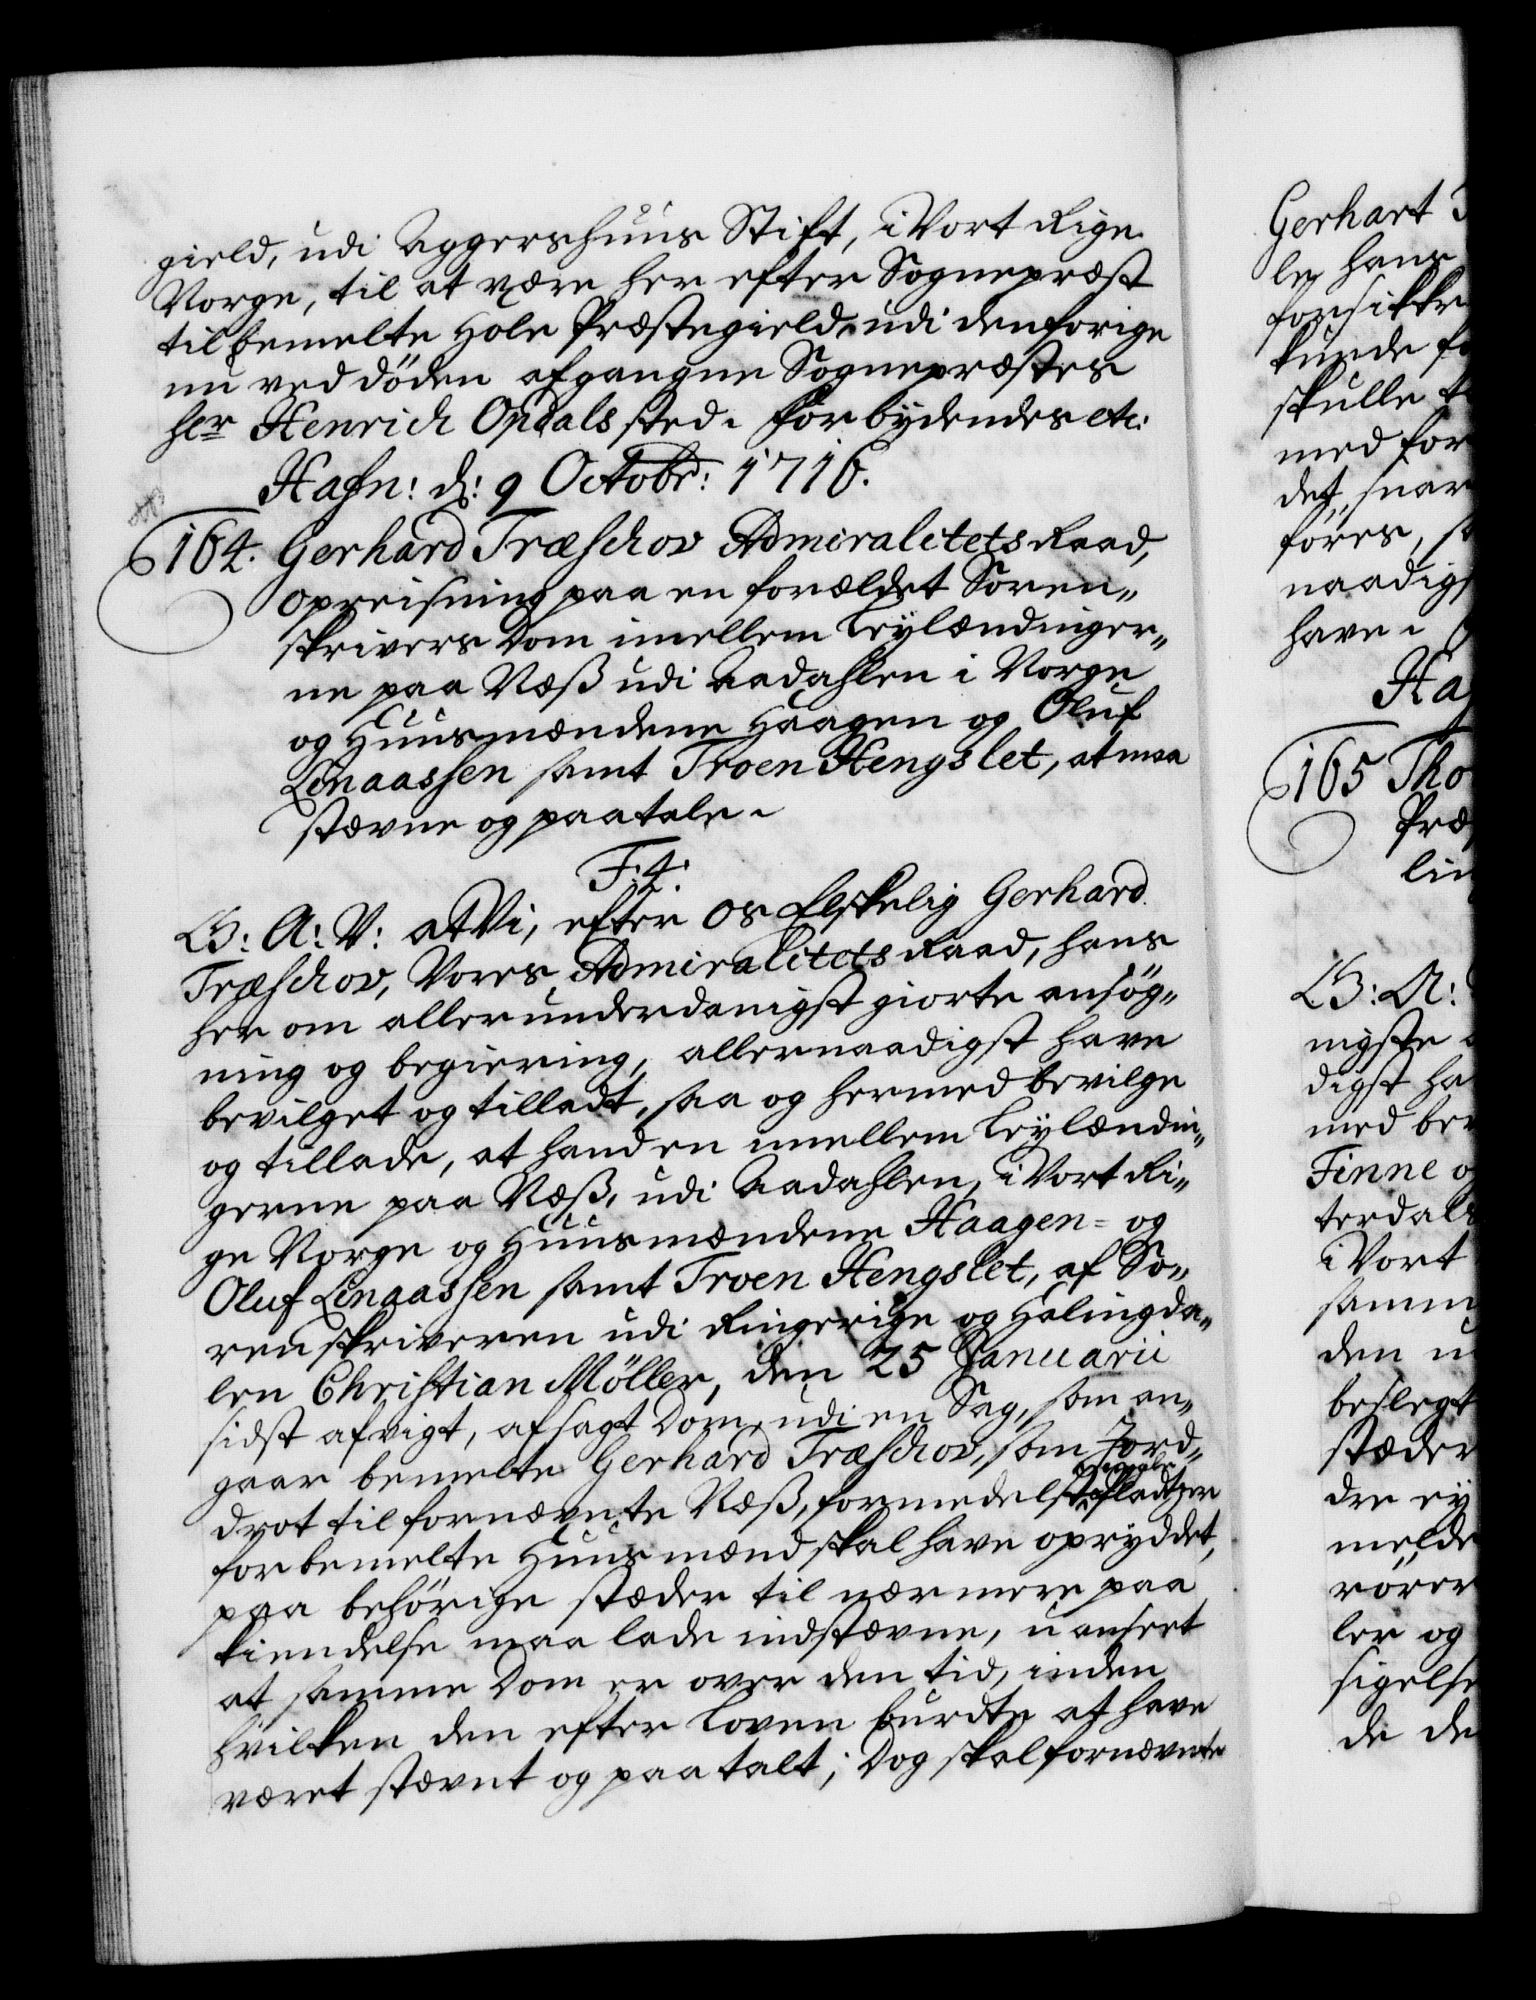 gield, udi Aggershuus Stift, i Vort Rige
Norge, til at være her efter Sognepræst
til bemelte Hole Præstegield, udi den forige
nu ved döden afgangne Sognepræstes
her Henrich Opdals sted. Forbydendes etc:
Hafn: d: 9 Octobr: 1716.
164. Gerhard Træschov Admiralitets Raad,
opreisning paa en forældet Soren„
skrivers Dom imellem Leylændinger„
ne paa Næss udi Aadahlen i Norge
og Huusmændene Haagen og Oluf
Linaassen samt Troen Hengslet, at maa
stævne og paatale.
F. 4.
G: A: V: at Vi, efter os Elskelig Gerhard
Træschov, Vores Admiralitets Raad, hans
her om allerunderdanigst giorte ansög„
ning og begiering, allernaadigst have
bevilget og tilladt, saa og hermed bevilge
og tillade, at hand en imellem Leylændin„
gerne paa Næss, udi Aadahlen, i Vort Ri„
ge Norge og Huusmændene Haagen = og
Oluf Linaassen samt Troen Hengslet, af So„
renskriveren udi Ringerige og Halingda„
len Christian Möller, den 25 Januarii
sidst afvigt, afsagt Dom, udi en Sag, som an„
gaar bemelte Gerhard Træschov, som Jord„
drot til fornævnte Næss, formedelst pladtzer
forbemelte Huusmænd skal have opryddet,
paa behörige stæder til nærmere paa
kiendelse maa lade indstævne, uanseet
at samme Dom er over den tid, inden
hvilken den efter Loven burdte at have
været stævnt og paatalt; Dog skal fornævnte
Gerhart
le hans
forsikkr
kunde
skulle
med for
det, snar
föres,
naadigs
have.
Ha
165 Tho
Præ
lin
G: A:
nigste
digst ha
med bev
Finne og
terdals
i Vort
samm
den u
beslegt
stæder
dre ey
melde
rörer
ler og
sigelse
de de